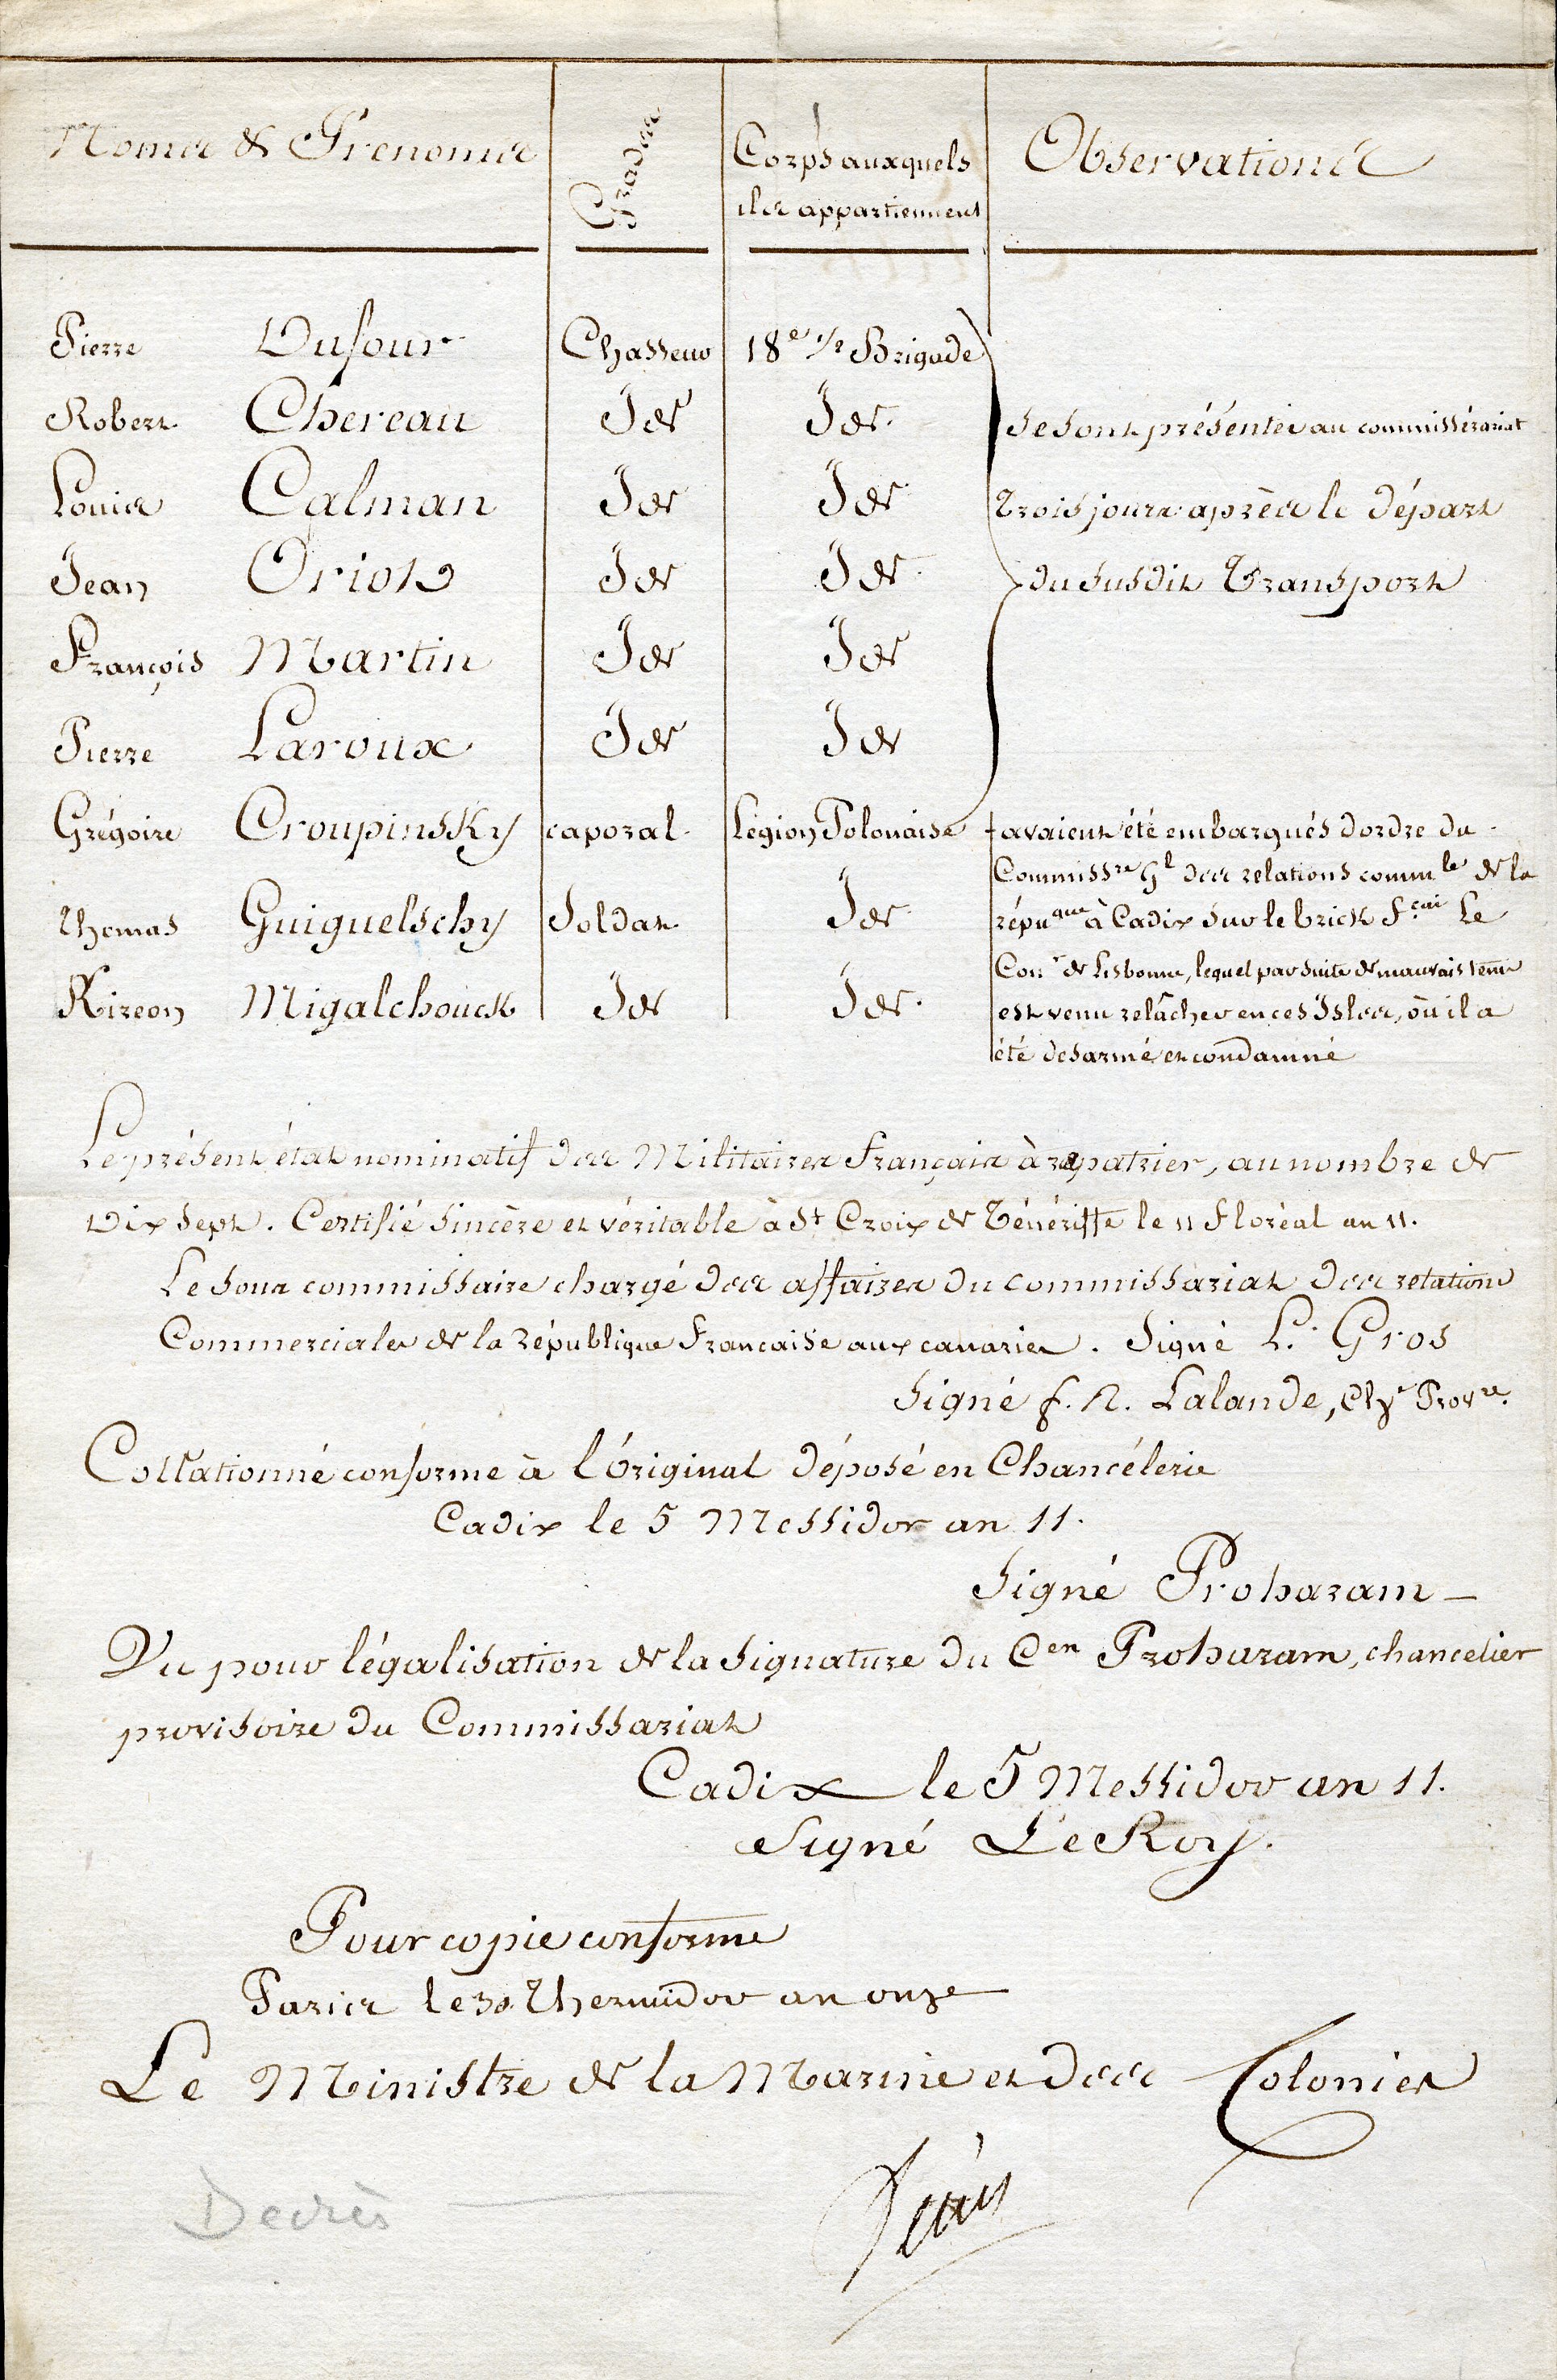 Noms & Prenoms Grades Corps auxquels Observations
ils appartiennent
Pierre Dufour Chasseur 18e 1/2 Brigade
Robert Chereau Id Id. se sont présentés au commissérariat
Louis Calman Id Id trois jours après le départ
Jean Oriol Id Id. du susdit Transport
François Martin Id Id
Pierre Laroux Id Id
Grégoire Croupinsky caporal Légion Polonaise avaient été embarqués d'ordre du
Commissre Gl des relations commles de la
Thomas Guiguelschy Soldat Id répuque à Cadix sur le brick fçais Le
Conr de Lisbonne, lequel par suite de mauvais tems
Kireon Migalchouck Id Id. est venu relâcher en ces Isles, où il a
été desarmé et condamné
Le présent état nominatif des Militaires français à repatrier, au nombre de
Dix sept. Certifié sincère et véritable à St Croix de Ténériffe le 11 floréal an 11.
Le sous commissaire chargé des affaires du commissariat des relations
Commerciales de la République Francaise aux canaries. Signé L. Gros
Signé f. N. Lalande, Chr Provre.
Collationné conforme à l'Original déposé en Chancélerie
Cadix le 5 Messidor an 11.
Signé Proharam
Vu pour légalisation de la signature du Cen Proharam, chancelier
provisoire du Commissariat
Cadix le 5 Messidor an 11.
Signé Le Roy.
Pour copie conforme
Paris le 30 thermidor an onze
Le Ministre de la Marine et des Colonies
Decrès
Decrès